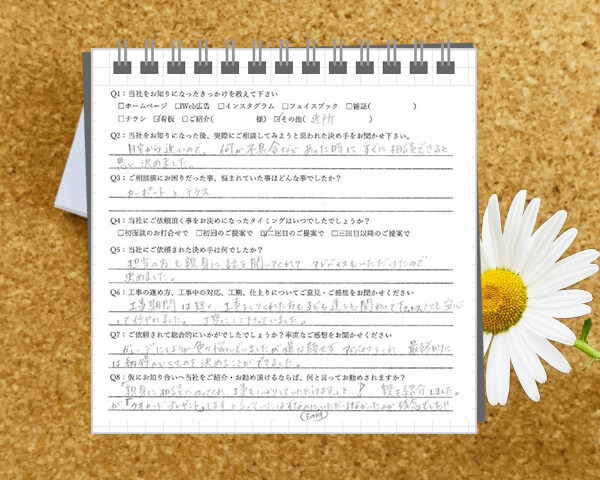 Q1：当社をお知りになったきっかけを教えて下さい
□ホームページ □Web広告 □インスタグラム □フェイスブック □雑誌( )
□チラシ ☑看板 □ご紹介( 様) ☑その他( 近所 )
Q2：当社をお知りになった後、実際にご相談してみようと思われた決め手をお聞かせ下さい。
自宅から近いので、何か不具合などあった時にすぐに相談できると
思い決めました。
Q3：ご相談前にお困りだった事、悩まれていた事はどんな事でしたか？
カーポートとテラス
Q4：当社にご依頼頂く事をお決めになったタイミングはいつでしたでしょうか？
□初面談のお打合せで □初回のご提案で ☑二回目のご提案で □三回目以降のご提案で
Q5：当社にご依頼された決め手は何でしたか？
担当の方も親身に話を聞いてくれて、アドバイスもいただけたので
決めました。
Q6：工事の進め方、工事中の対応、工期、仕上りについてご意見・ご感想をお聞かせください
工事期間は短くて工事をしてくれた方も子ども達とも関わって下さったりとても安心
して任せれました。丁寧にして下さっていました。
Q7：ご依頼されて総合的にいかがでしたでしょうか？率直なご感想をお聞かせください
色々悩んでいましたが アドバイスをくれ、最終的に
は納得のいくものを決めることができました。
Q8：仮にお知り合いへ当社をご紹介・お勧め頂けるならば、何と言ってお勧めされますか？
「親身に相談にのってくれ、工事もしっかりしていただけますよ」 親を紹介しました。
が「クオカードプレゼント」します と いただけなかったのが残念でした!!